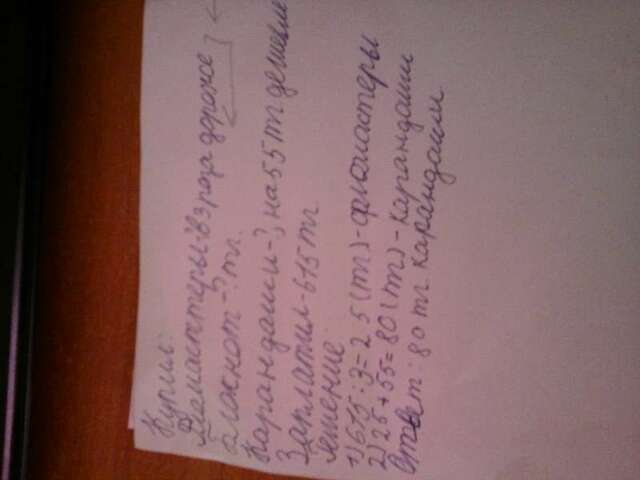 Купил:
Фломастеры-?в 3 раза дороже
Блокнот-?тг.
Карандаши-?, на 55 тг дешевле
Заплатил-615 тг
Решение
1) 615:3=2 5 (тг)-фломастеры
2) 25+55=80 (тг)-карандаши
Ответ: 80 тг карандаши